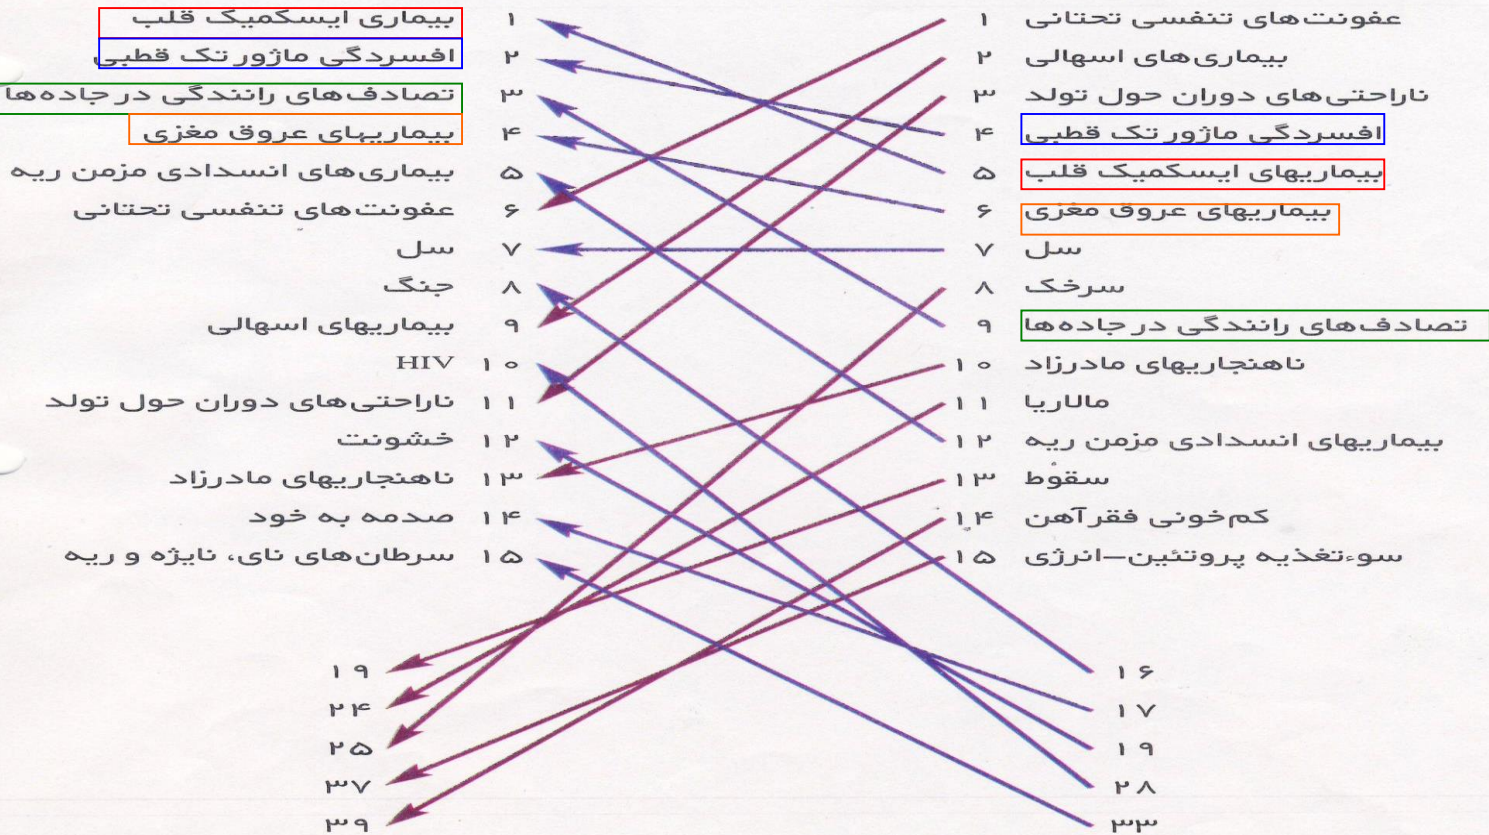 ۱ عفونت‌های تنفسی تحتانی
۲ بیماری‌های اسهالی
۳ ناراحتی‌های دوران حول تولد
۴ افسردگی ماژور تک قطبی
۵ بیماریهای ایسکمیک قلب
۶ بیماریهای عروق مغزی
۷ سل
۸ سرخک
۹ تصادف‌های رانندگی در جاده‌ها
۱۰ ناهنجاریهای مادرزاد
۱۱ مالاریا
۱۲ بیماریهای انسدادی مزمن ریه
۱۳ سقوط
۱۴ کم‌خونی فقرآهن
۱۵ سوءتغذیه پروتئین–انرژی
۱۶
۱۷
۱۹
۲۸
۳۳
۱ بیماری ایسکمیک قلب
۲ افسردگی ماژور تک قطبی
۳ تصادف‌های رانندگی در جاده‌ها
۴ بیماریهای عروق مغزی
۵ بیماری‌های انسدادی مزمن ریه
۶ عفونت‌های تنفسی تحتانی
۷ سل
۸ جنگ
۹ بیماریهای اسهالی
۱۰ HIV
۱۱ ناراحتی‌های دوران حول تولد
۱۲ خشونت
۱۳ ناهنجاریهای مادرزاد
۱۴ صدمه به خود
۱۵ سرطان‌های نای، نایژه و ریه
۱۹
۲۴
۲۵
۳۷
۳۹